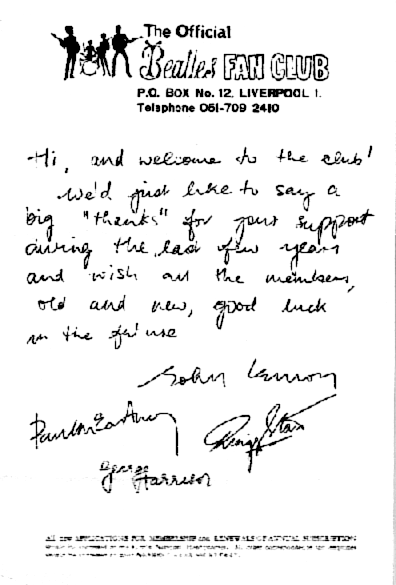 The Official
Beatles FAN CLUB
P.O. BOX No. 12, LIVERPOOL 1.
Telephone 051-709 2410
Hi, and welcome to the club!
We'd just like to say a
big "thanks" for your support
during the last few years
and wish all the members,
old and new, good luck
in the future
John Lennon
Paul McCartney
Ringo Starr
George
Harrison
All new APPLICATIONS FOR MEMBERSHIP and RENEWALS OF ANNUAL SUBSCRIPTIONS